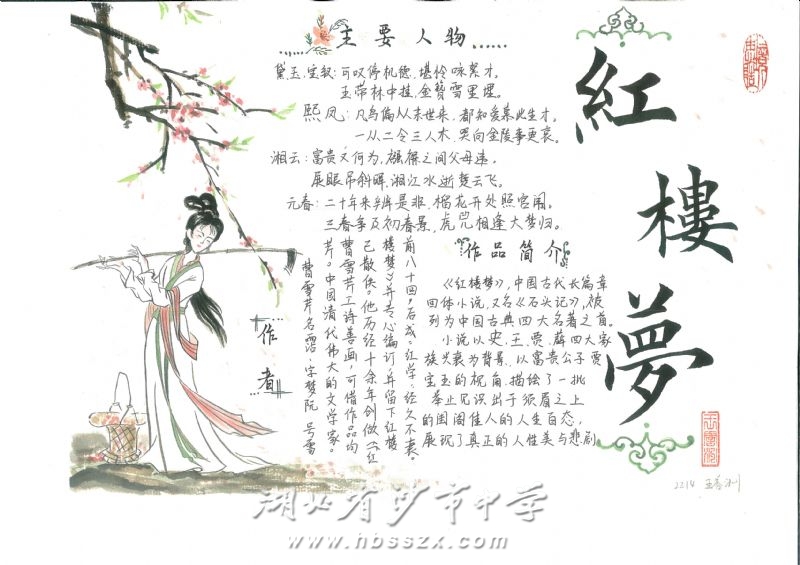 紅樓夢
主要人物
黛玉、宝钗:可叹停机德,堪怜咏絮才。
玉带林中挂,金簪雪里埋。
熙凤:凡鸟偏从末世来,都知爱慕此生才。
一从二令三人木,哭向金陵事更哀。
湘云:富贵又何为,襁褓之间父母违,
展眼吊斜晖,湘江水逝楚云飞。
元春:二十年来辨是非,榴花开处照宫闱。
三春争及初春景,虎兕相逢大梦归。
作品简介
《红楼梦》,中国古代长篇章
回体小说,又名《石头记》,被
列为中国古典四大名著之首。
小说以史、王、贾、薛四大家
族兴衰为背景,以富贵公子贾
宝玉的视角,描绘了一批
举止见识出于须眉之上
的闺阁佳人的人生百态,
展现了真正的人性美与悲剧
作者
曹雪芹名霑,字梦阮,号雪
芹。中国清代伟大的文学家。
曹雪芹工诗善画,可惜作品均
已散佚。他历经十余年创做《红
楼梦》并专心编订,并留下红楼
前八十回,后成“红学”经久不衰。
2214
湖北省沙市中学
www.hbsszx.com